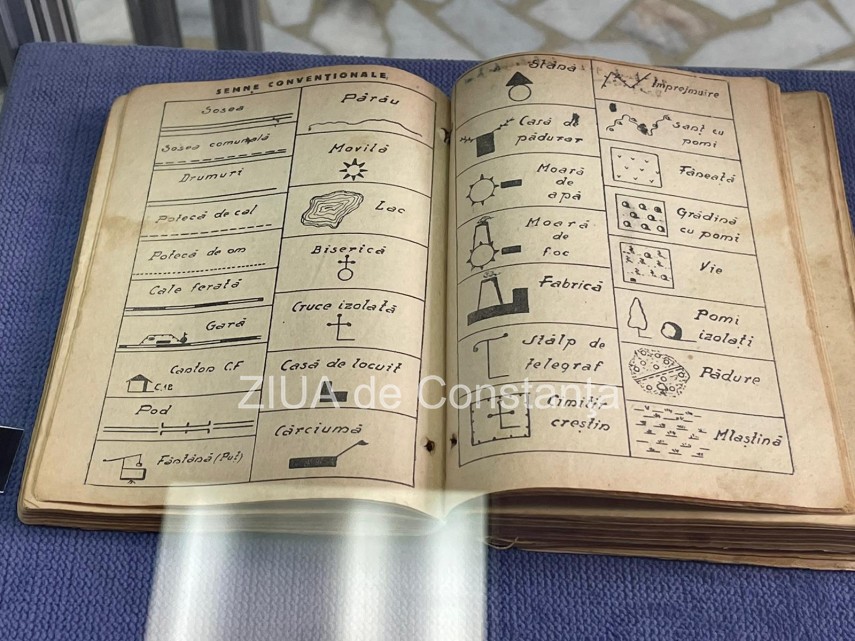 SEMNE CONVENȚIONALE
Șosea
Șosea comunală
Drumuri
Potecă de cal
Potecă de om
Cale ferată
Gară
Canton C.F
C.12
Pod
Fântână (Puț)
Pârâu
Movilă
Lac
Biserică
Cruce izolată
Casă de locuit
Cârciumă
Stână
Casă de
pădurar
Moară
de
apă
Moară
de
foc
Fabrică
Stâlp de
telegraf
Cimitir
creștin
Împrejmuire
Șanț cu
pomi
Fâneață
Grădină
cu pomi
Vie
Pomi
izolați
Pădure
Mlaștină
ZIUA de Constanța